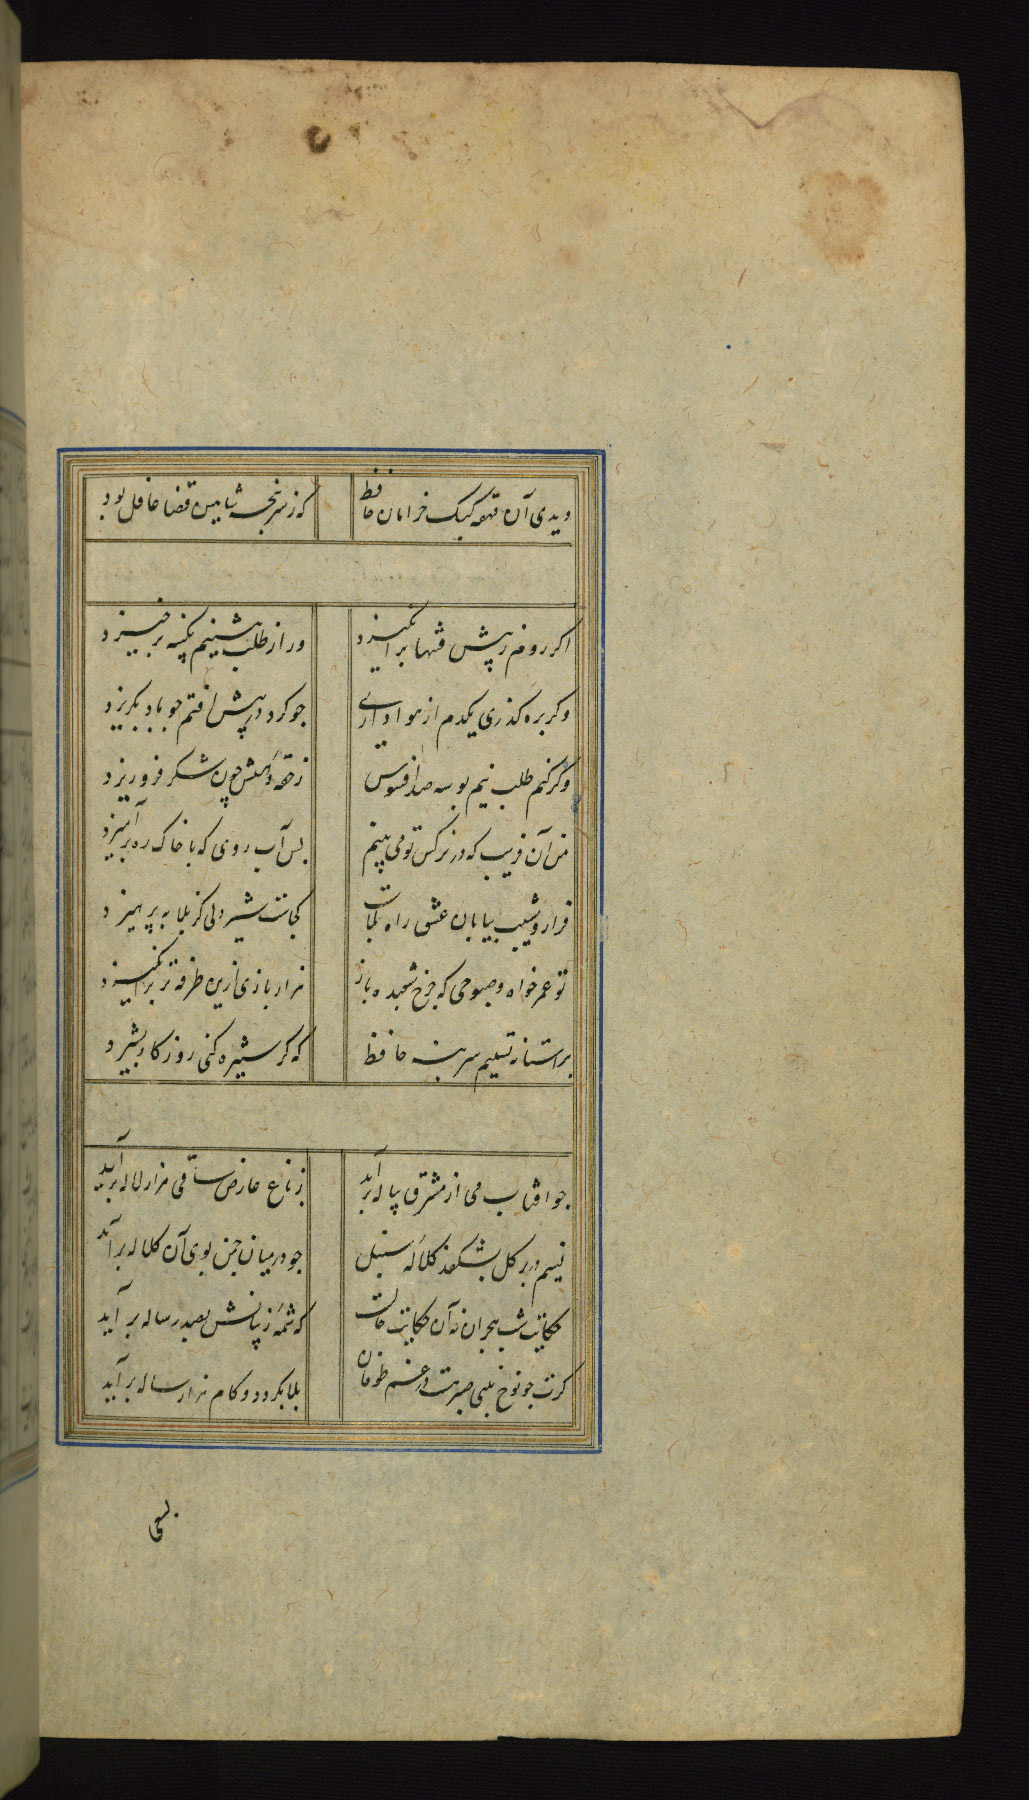 دیدی آن قهقه کبک خرامان حافظ که ز سرپنجه شاهین قضا غافل بود
اکر روم ز پیش فتنها برانکیزد ور از طلب بنشینم بکینه برخیزد
وکر برهکذری یکدم از هواداری چو کرد در پیش افتم چو باد بکریزد
وکر کنم طلب نیم بوسه صد افسوس ز حقه دهنش چون شکر فرو ریزد
من آن فریب که در نرکس تو می بینم بس آب روی که با خاک ره برآمیزد
فراز و شیب بیابان عشق راه بلاست کجاست شیردلی کز بلا نپرهیزد
تو عمر خواه و صبوحی که چرخ شعبده باز هزار بازی ازین طرفه تر برانکیزد
بر آستانه تسلیم سر بنه حافظ که کر ستیزه کنی روزکار بستیزد
چو آفتاب می از مشرق پیاله برآید ز باغ عارض ساقی هزار لاله برآید
نسیم در سر کل بشکند کلاله سنبل چو در میان چمن بوی آن کلاله برآید
حکایت شب هجران نه آن حکایت حالست که شمه ز بیانش بصد رساله برآید
کرت چو نوح نبی صبر هست در غم طوفان بلا بکردد و کام هزار ساله برآید
بسعی